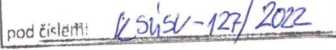 pod číslem: KSÚSV-127/2022